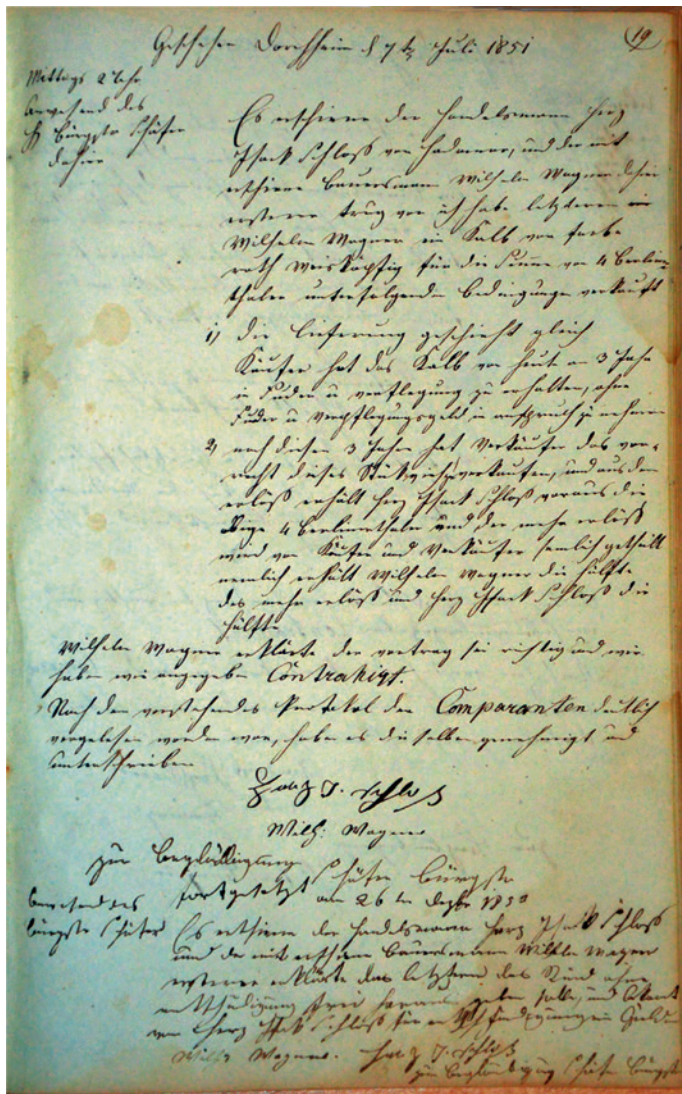 19
Geschehen Dorchheim d 7 t. Juli 1851
Mittags 2 Uhr
Anwesend des
H Bürgstr Schäfer
dahier
Es erschiene der Handelsmann Herz
Isack Schloß von Hadamar, und der mit
erschiene Bauersmann Wilhelm Wagner dahier
ersterer trug vor ich habe letzteren
Wilhelm Wagner ein Kalb von farbe
roth Weisköpfig für die Summe von 4 Berliner
thaler unterfolgenden bedingungen verkauft
1) die lieferung geschieht gleich
Käufer hat das Kalb von heute an 3 Jahr
in Fuder u verpflegung zu erhalten, ohne
Fuder u verpflegungsgeld in anspruch zu nehmen
2) nach diesen 3 Jahren hat Verkäufer das vor-
recht dieses Stük vieh verkaufen, und aus dem
erlöß erhält Herz Isack Schloß voraus die
4 Berlinerthaler und der mehr erlöß
wird von Käufer und Verkäufer getheilt
nemlich erhält Wilhelm Wagner die Hälfte
des mehr erlöß und Herz Isack Schloß die
Hälfte
Wilhelm Wagner erklärte der vertrag sei richtig und wir
haben wie angegeben Contrahirt.
Nach dem vorstehendes Protokol den Comparanten deutlich
vorgelesen worden war, haben es dieselben genehmigt und
unterschrieben
Herz J. Schloß
Wilh: Wagner
zur Beglaubigung
Schäfer Bürgstr
fortgesetzt am 26 ten Dezbr
Anwesend des
Bürgstr Schäfer
Es erschiene der Handelsmann Herz Isack Schloß
und der mit erschiene Bauersmann Wilhelm Wagner
ersterer erklärte das letzterer das Rind ohne
entschädigung frei geben solle, und bekomt
von Herz Isack Schloß für entschädigung ein Gulden
Wilh Wagner. Herz J. Schloß
zur Beglaubigung Schäfer Bürgstr